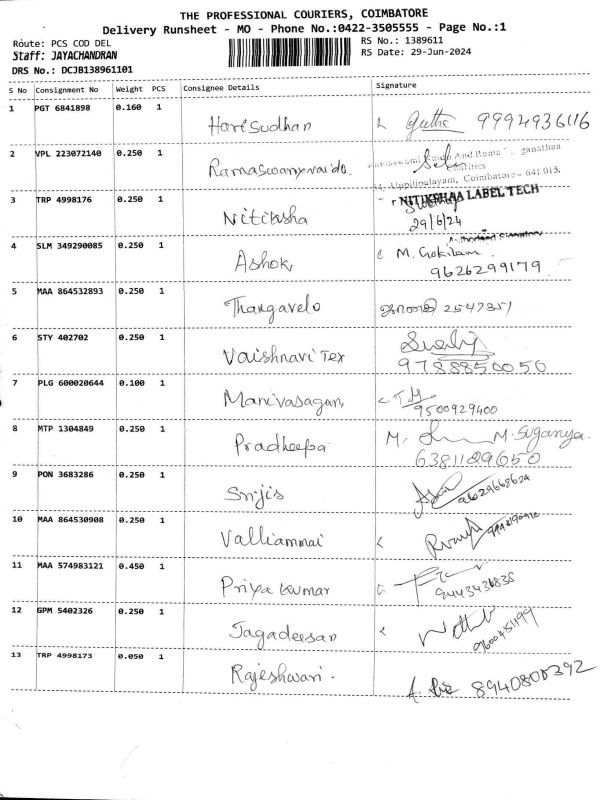 THE PROFESSIONAL COURIERS, COIMBATORE
Delivery Runsheet - MO - Phone No.:0422-3505555 - Page No.:1
Route: PCS COD DEL
RS No.: 1389611
Staff: JAYACHANDRAN
RS Date: 29-Jun-2024
DRS No.: DCJB138961101
S No Consignment No Weight PCS Consignee Details Signature
1 PGT 6841898 0.160 1 HariSudhan 9994936116
2 VPL 223072140 0.250 1 Ramaswamynaidu.
Uppilipalayam, Coimbatore - 641 015.
3 TRP 4998176 0.250 1 Nitiksha NITIKSHAA LABEL TECH
29/6/24
4 SLM 349290085 0.250 1 Ashok M. Gokilam
9626299179
5 MAA 864532893 0.250 1 Thangavelo 2547351
6 STY 402702 0.250 1 Vaishnavi Tex
9788850050
7 PLG 600020644 0.100 1 Manivasagan
9500929400
8 MTP 1304849 0.250 1 Pradheepa M. Suganya
6381129650
9 PON 3683286 0.250 1 Srijis 9629668624
10 MAA 864530908 0.250 1 Valliammai
11 MAA 574983121 0.450 1 Priya Kumar
9443436838
12 GPM 5402326 0.250 1 Jagadeesan
9600451199
13 TRP 4998173 0.050 1 Rajeshwari. 8940800392